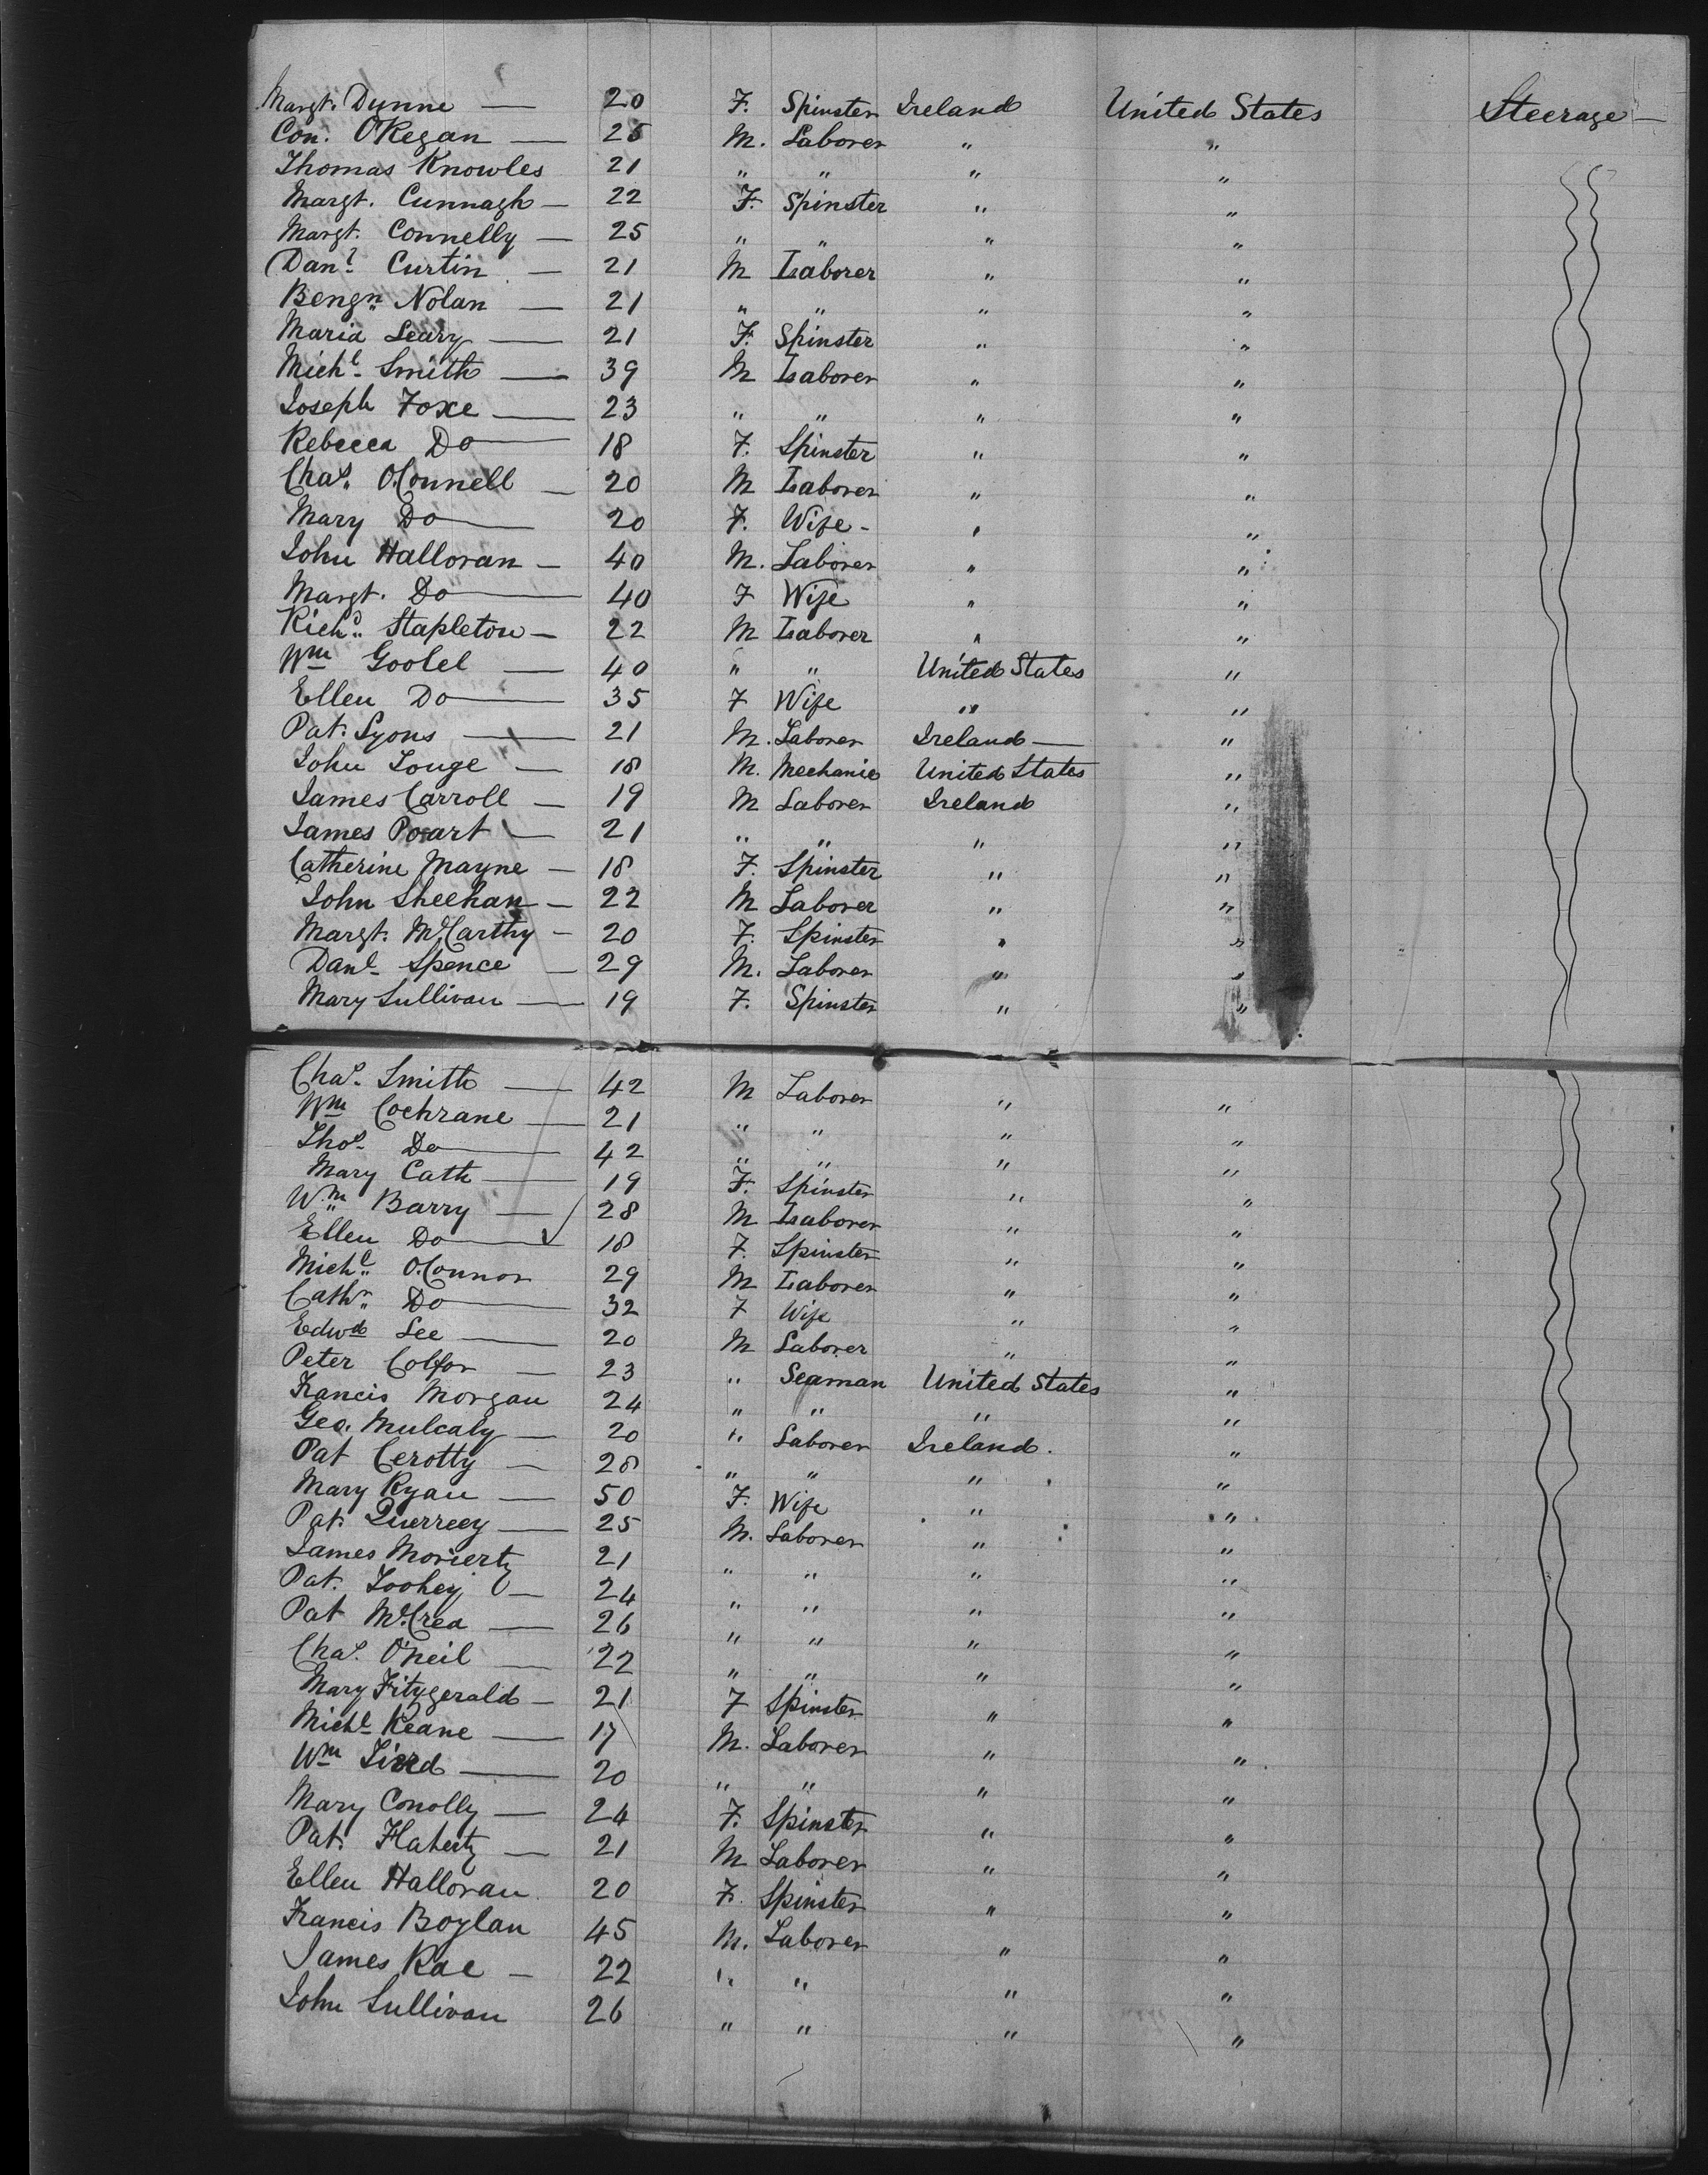 Margt. Dunne — 20 F. Spinster Ireland United States Steerage —
Con. O'Regan — 25 M. Laborer " "
Thomas Knowles 21 " " " "
Margt. Cunnagh — 22 F. Spinster " "
Margt. Connelly — 25 " " " "
Danl. Curtin — 21 M Laborer " "
Bengn. Nolan — 21 " " " "
Maria Leary — 21 F. Spinster " "
Michl. Smith — 39 M Laborer " "
Joseph Foxe — 23 " " " "
Rebecca Do — 18 F. Spinster " "
Chas. O'Connell — 20 M Laborer " "
Mary Do — 20 F. Wife - " "
John Halloran — 40 M. Laborer " "
Margt. Do — 40 F Wife " "
Richd. Stapleton — 22 M Laborer " "
Wm Goolel — 40 " " United States "
Ellen Do — 35 F Wife " "
Pat. Lyons — 21 M. Laborer Ireland — "
John Louge — 18 M. Mechanic United States "
James Carroll — 19 M Laborer Ireland "
James — 21 " " " "
Catherine Mayne — 18 F. Spinster " "
John Sheehan — 22 M Laborer " "
Margt. McCarthy — 20 F. Spinster " "
Danl. Spence — 29 M. Laborer " "
Mary Sullivan — 19 F. Spinster " "
Chas. Smith — 42 M Laborer " "
Wm Cochrane — 21 " " " "
Thos. Do — 42 " " " "
Mary Cath — 19 F. Spinster " "
Wm Barry — 28 M Laborer " "
Ellen Do — 18 F. Spinster " "
Michl. O'Connor 29 M Laborer " "
Cathn. Do — 32 F Wife " "
Edwd Lee — 20 M Laborer " "
Peter Colfor — 23 " Seaman United States "
Francis Morgan 24 " " " "
Geo. Mulcaly — 20 " Laborer Ireland. "
Pat Cerotty — 28 " " " "
Mary Ryan — 50 F. Wife " "
Pat. Querreey — 25 M. Laborer " "
James Morierty 21 " " " "
Pat. Toohey — 24 " " " "
Pat McCrea — 26 " " " "
Chas. O'Neil — 22 " " " "
Mary Fitzgerald — 21 F Spinster " "
Michl. Keane — 17 M. Laborer " "
Wm — 20 " " " "
Mary Conolly — 24 F. Spinster " "
Pat. Flaherty — 21 M Laborer " "
Ellen Halloran 20 F. Spinster " "
Francis Boylan 45 M. Laborer " "
James Rae — 22 " " " "
John Sullivan 26 " " " "